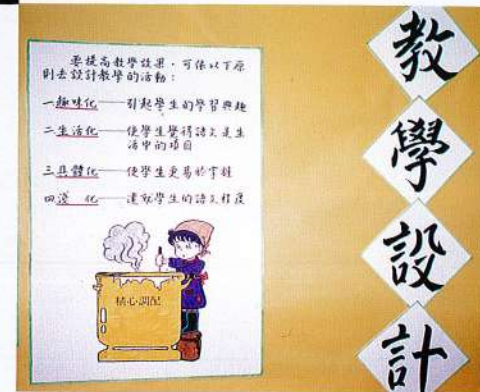 要提高教學效果，可依以下原
則去設計教學的活動：
一趣味化——引起學生的學習興趣
二生活化——使學生覺得語文是生
活中的項目
三具體化——使學生更易於掌握
四淺 化——遷就學生的語文程度
精心調配
教
學
設
計